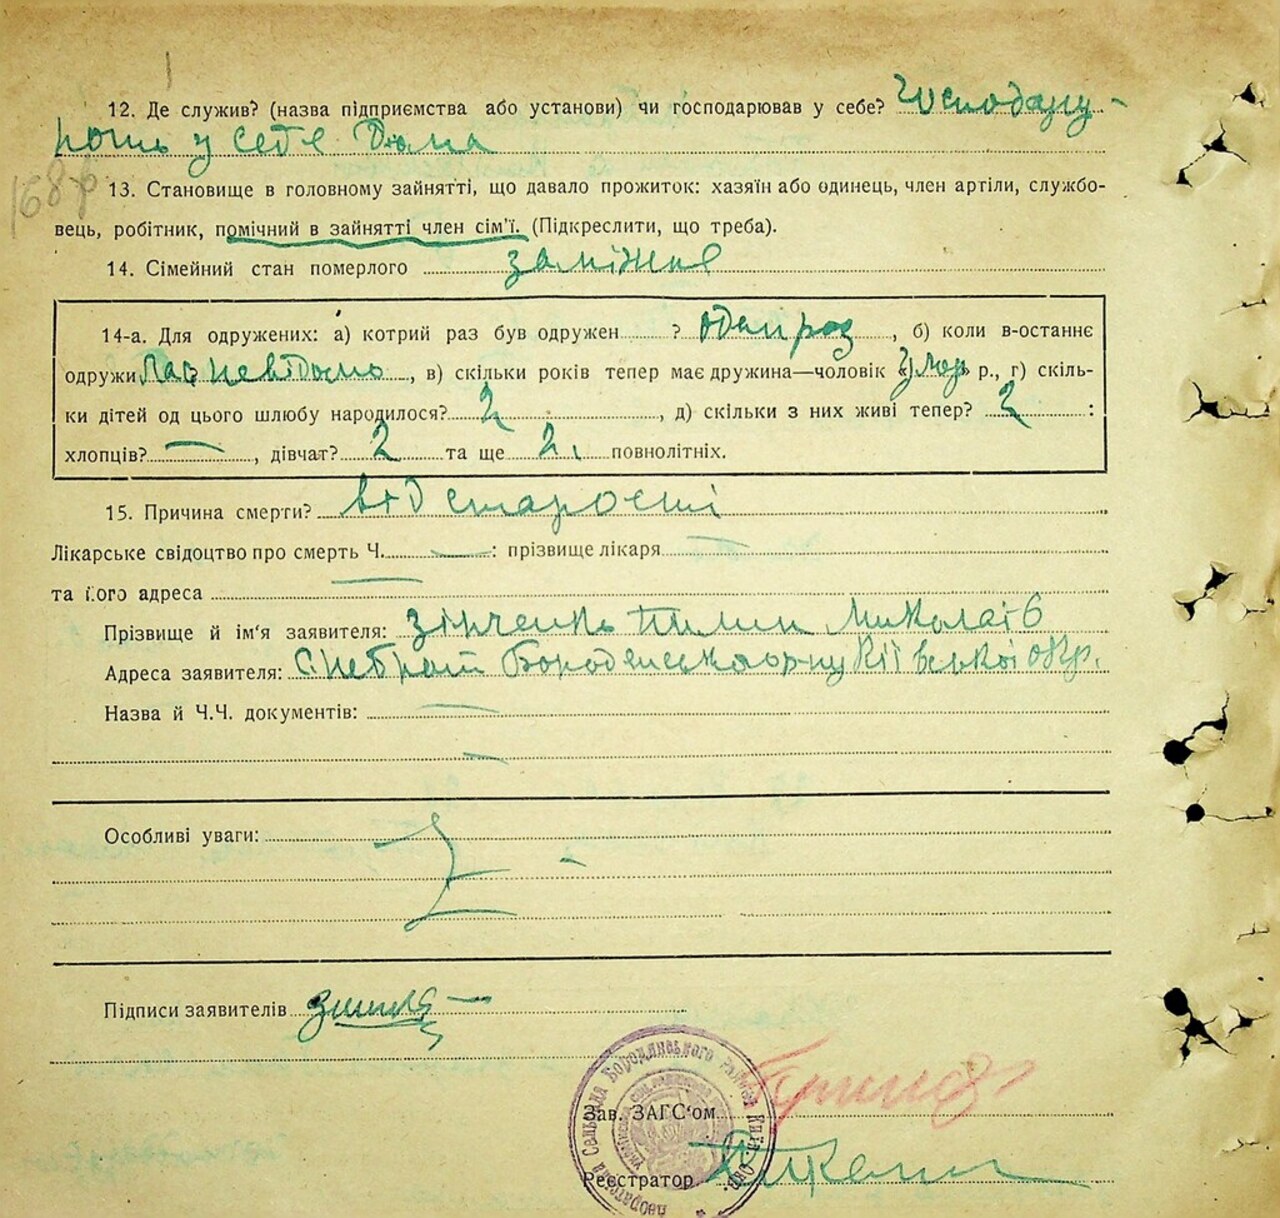 12. Де служив? (назва підприємства або установи) чи господарював у себе? Господару-
ють у себе дома
168 р
13. Становище в головному зайнятті, що давало прожиток: хазяїн або одинець, член артіли, службо-
вець, робітник, помічний в зайнятті член сім'ї. (Підкреслити, що треба).
14. Сімейний стан померлого заміжня
14-а. Для одружених: а) котрий раз був одружен ? один раз, б) коли в-останнє
одружилась невідомо, в) скільки років тепер має дружина—чоловік «умер» р., г) скіль-
ки дітей од цього шлюбу народилося? 2, д) скільки з них живі тепер? 2 :
хлопців? —, дівчат? 2 та ще 2. повнолітніх.
15. Причина смерти? від старости
Лікарське свідоцтво про смерть Ч. — : прізвище лікаря —
та його адреса —
Прізвище й ім'я заявителя: Зінченко Пилип Миколаїв
Адреса заявителя: с. Небрат Бородянського р-ну Київської окр.
Назва й Ч.Ч. документів: —
—
Особливі уваги:
Підписи заявителів
Бородянського району Київ. Окр.
Зав. ЗАГС'ом
Реєстратор